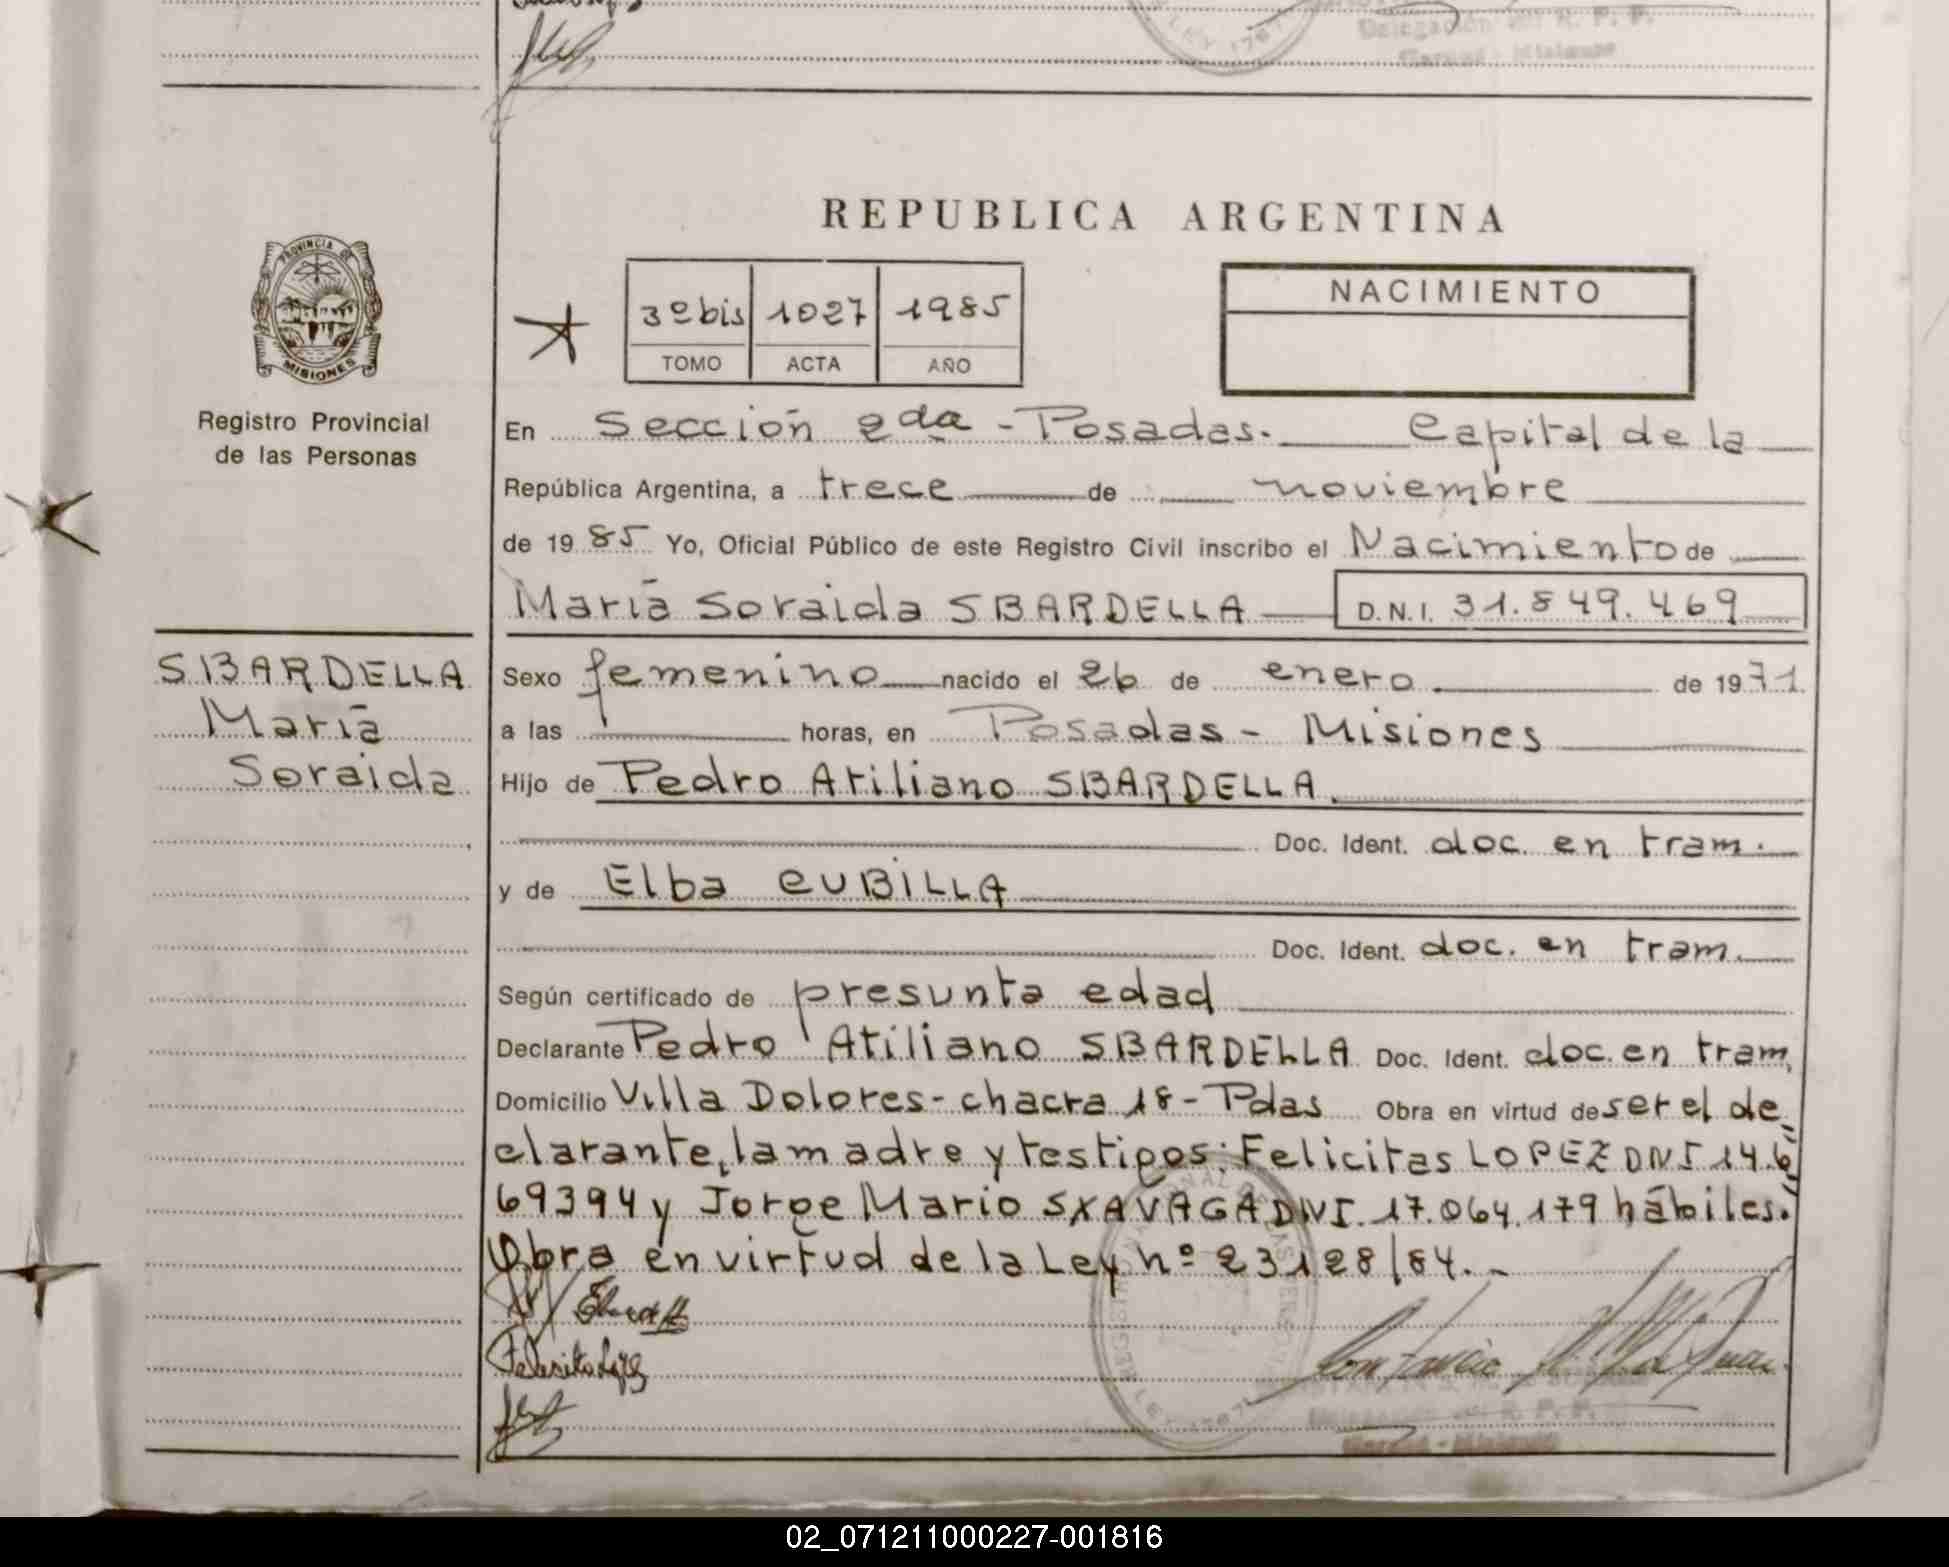 REPUBLICA ARGENTINA
PROVINCIA DE
MISIONES
Registro Provincial
de las Personas
3º bis 1027 1985
TOMO ACTA AÑO
NACIMIENTO
En Sección 2da - Posadas. Capital de la
República Argentina, a trece de noviembre
de 1985 Yo, Oficial Público de este Registro Civil inscribo el Nacimiento de
María Soraida SBARDELLA D.N.I. 31.849.469
SBARDELLA
María
Soraida
Sexo femenino nacido el 26 de enero de 1971.
a las horas, en Posadas - Misiones
Hijo de Pedro Atiliano SBARDELLA
Doc. Ident. doc. en tram.
y de Elba CUBILLA
Doc. Ident. doc. en tram.
Según certificado de presunta edad
Declarante Pedro Atiliano SBARDELLA Doc. Ident. doc. en tram.
Domicilio Villa Dolores - chacra 18 - Pdas Obra en virtud de ser el de
clarante, la madre y testigos: Felicitas LOPEZ DNI 14.6
69394 y Jorge Mario SXAVAGA DNI. 17.064.179 hábiles.
Obra en virtud de la Ley nº 23128/84.-
02_071211000227-001816